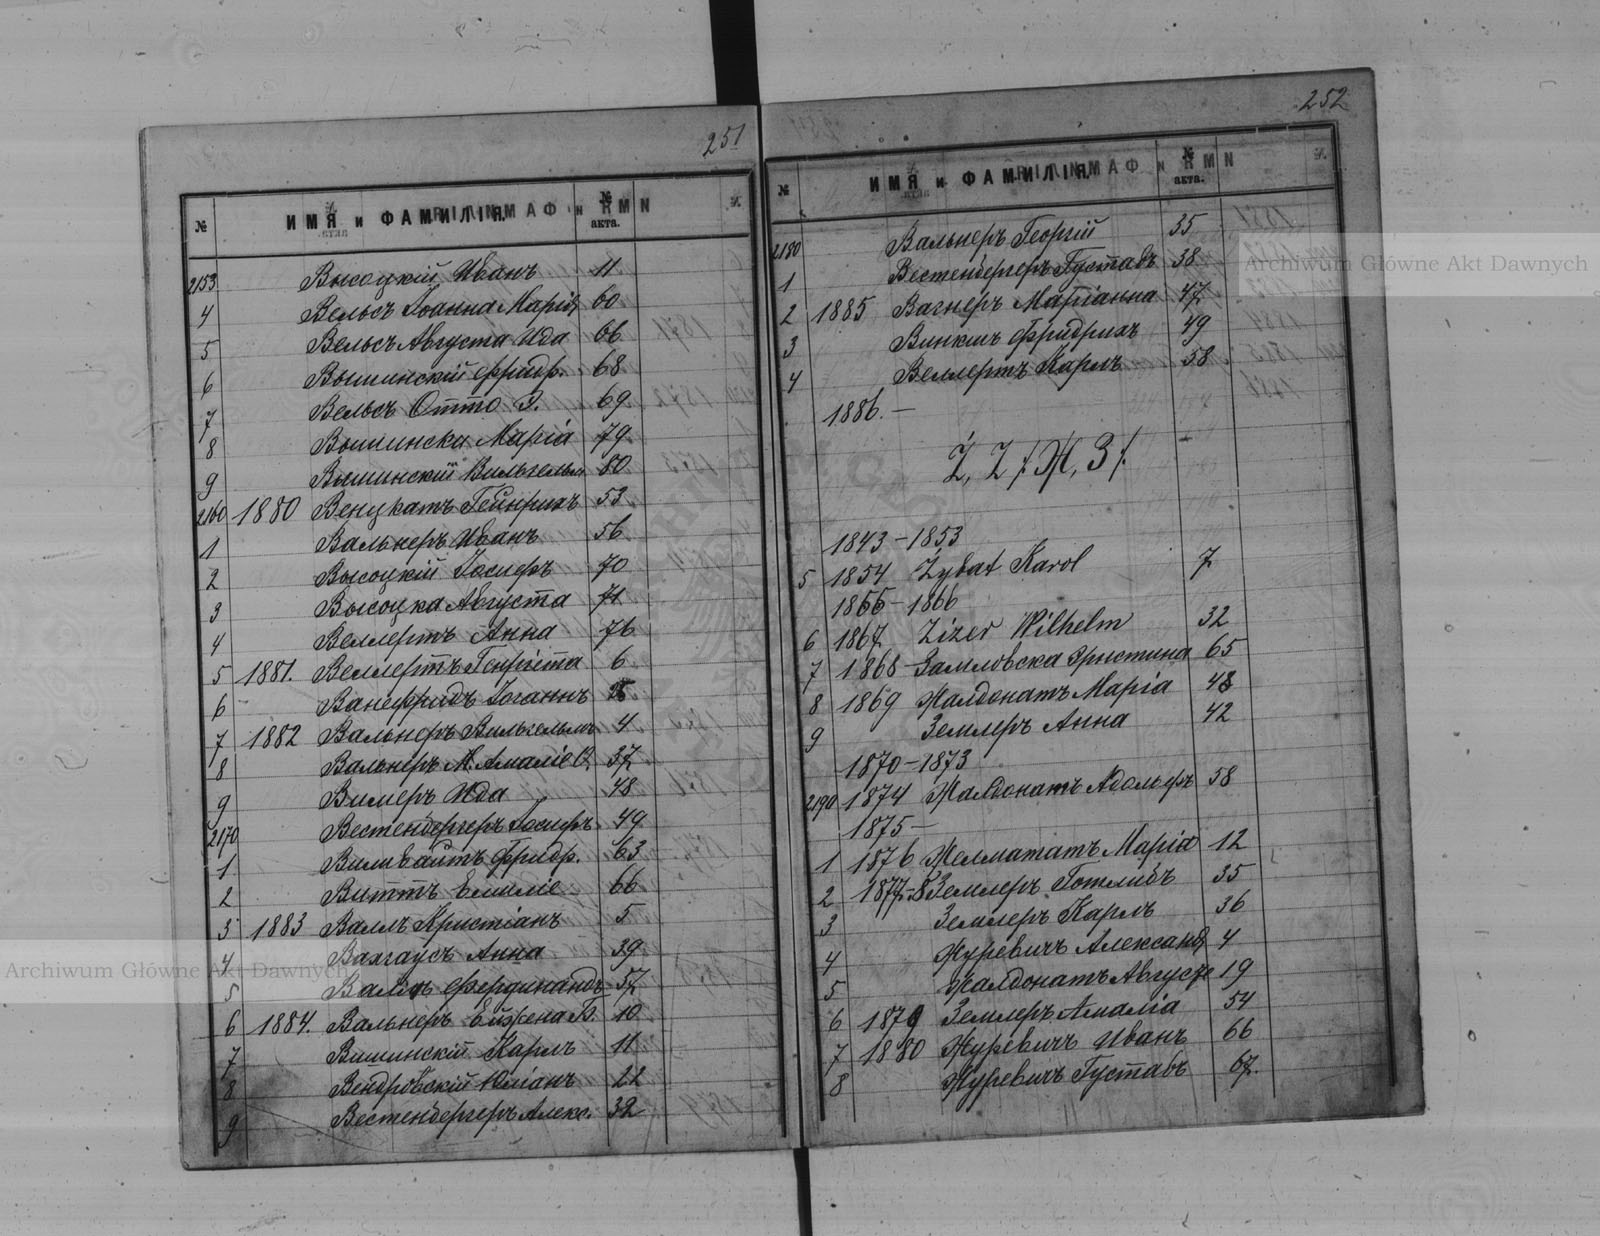 251
№ ИМЯ и ФАМИЛІЯ. № акта.
2153 Высоцкій Иванъ 11
4 Вельсъ Іоанна Марія 60
5 Вельсъ Августа Ида 66
6 Вышинскій Фридр. 68
7 Вельсъ Отто Э. 69
8 Вышинска Марія 79
9 Вышинскій Вильгельм 80
2160 1880 Венцкатъ Гейнрихъ 53
1 Вальнеръ Иванъ 56
2 Высоцкій Іосифъ 70
3 Высоцка Августа 71
4 Веллертъ Анна 76
5 1881. Веллертъ Генріета 6
6 Ванефридъ Іоганнъ
7 1882 Вальнеръ Вильгельмъ 4
8 Вальнеръ М. Амаліе О. 37
9 Вимеръ Ида 48
2170 Вестенбергеръ Іосифъ 49
1 Виливайтъ Фридр. 63
2 Виттъ Емиліе 66
3 1883 Валлъ Кристіанъ 5
4 Вахгаусъ Анна 39
5 Фердинандъ 57
6 1884. Вальнеръ Ейжена Б. 10
7 Вишинскій Карлъ 11
8 Вендровскій Юліанъ 22
9 Вестенбергеръ Алекс. 32
252
№ ИМЯ и ФАМИЛІЯ. № акта.
2180 Вальнеръ Георгій 35
1 Вестенбергеръ Густавъ 38
2 1885 Вагнеръ Маріанна 47
3 Фридрихъ 49
4 Веллертъ Карлъ 58
1886. —
Ż, Z /Ж, З/. -
1843 – 1853
5 1854 Żybat Karol 7
1866 – 1866
6 1867 Zizer Wilhelm 32
7 1868 – Замловска Христина 65
8 1869 Жалдонатъ Марія 48
9 Землеръ Анна 42
1870 – 1873
2190 1874 Жалдонатъ Адольфъ 58
1875 –
1 1876 Желмататъ Марія 12
2 1877-8 Землеръ Готлибъ 35
3 Землеръ Карлъ 36
4 Журевичъ Александ 4
5 Жалдонатъ Августъ 19
6 1879 Землеръ Амалія 54
7 1880 Журевичъ Иванъ 66
8 Журевичъ Густавъ 67.
Archiwum Główne Akt Dawnych
Archiwum Główne Akt Dawnych